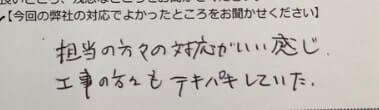 【今回の弊社の対応でよかったところをお聞かせください】
担当の方々の対応がいい感じ.
工事の方々もテキパキしていた.